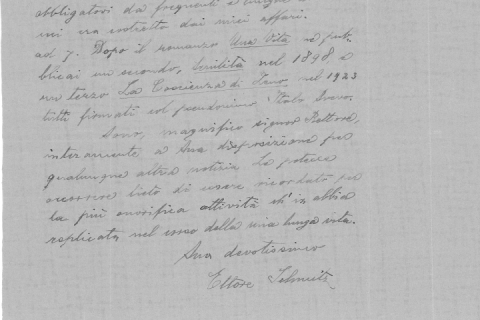 obbligatovi da frequenti e lunghi
cui era costretto dai miei affari.
ad 7. Dopo il romanzo Una Vita ne pub-
blicai un secondo, Senilità nel 1898, e
un terzo La Coscienza di Zeno nel 1923
tutti firmati col pseudonimo Italo Svevo.
Sono, magnifico signor Rettore,
interamente a Sua disposizione per
qualunque altra notizia Le potesse
occorrere lieto di essere ricordato per
la più onorifica attività ch'io abbia
esplicata nel corso della mia lunga vita.
Suo devotissimo
Ettore Schmitz